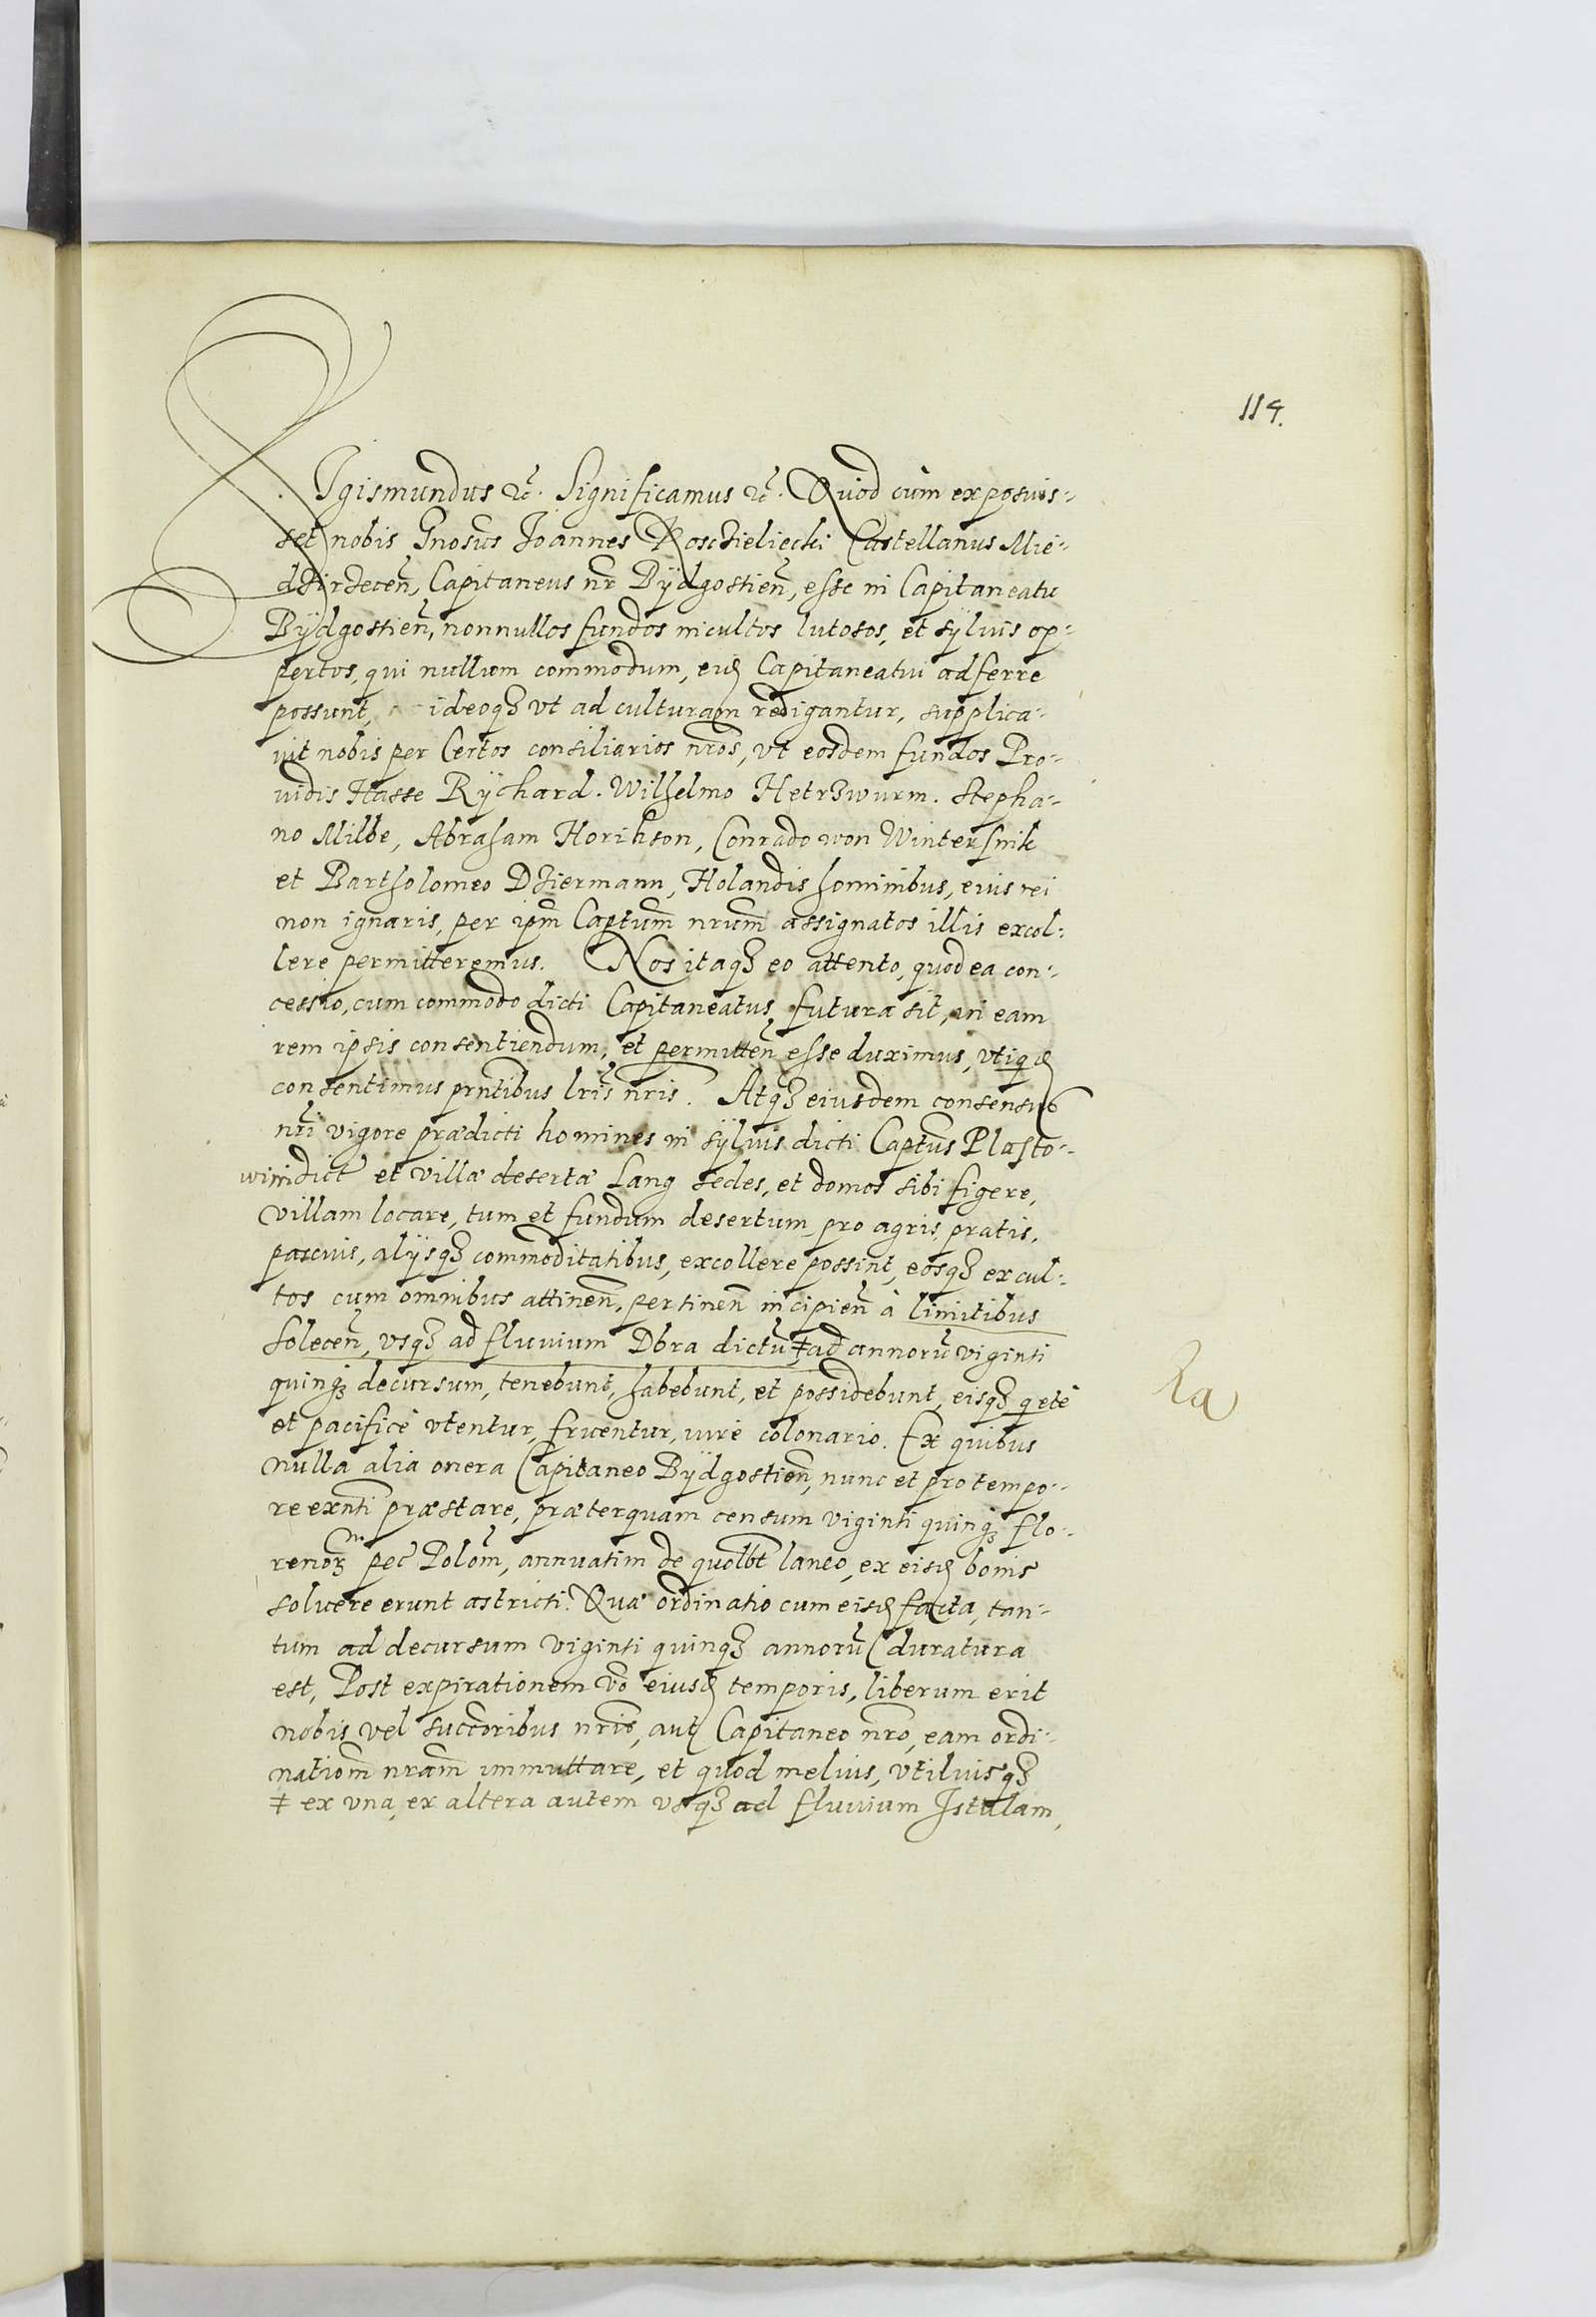 114.
Sigismundus etc̃. Significamus etc̃. Quod cùm exposuis-
set nobis Gnosũs Ioannes Kosczieliecki Castellanus Mie-
dzirzecen̄, Capitaneus nr̃ Bÿdgostien̄, esse in Capitaneatu
Bÿdgostien̄, nonnullos fundos incultos lutosos, et sÿluis op-
pertos, qui nullum commodum, eid Capitaneatui adferre
possunt, ideoqȝ vt ad culturam redigantur, supplica-
uit nobis per Certos consiliarios nr̃os, vt eosdem fundos Pro-
uidis Hasse Rÿchard. Wilhelmo Hetrzwurm. Stepha-
no Milbe, Abraham Horikson, Conrado von Wintersnik
et Bartholomeo Dziermann, Holandis hominibus, eius rei
non ignaris, per ipm̃ Captum̃ nrum̃ assignatos illis excol-
lere permitteremus. Nos itaqȝ eo attento, quod ea con-
cessio, cum commodo dicti Capitaneatus futura sit, in eam
rem ipsis consentiendum, et permitten̄ esse duximus, vtiqȝ
consentimus prñtibus lrĩs nr̃is. Atqȝ eiusdem consensus
nr̃i vigore prædicti homines in sÿluis dicti Captũs Plasto-
wini dict̃ et villæ desertæ Lang sedes, et domos sibi figere,
villam locare, tum et fundum desertum pro agris, pratis,
pascuis, alÿsqȝ commoditatibus, excollere possint, eosqȝ excul-
tos cum omnibus attinen̄, pertinen̄ incipien̄ à limitibus
Solecen̄, vsqȝ ad fluuium Dbra dictũ ‡ ad annorũ viginti
quinqȝ decursum, tenebunt, habebunt, et possidebunt, eisqȝ qetè
et pacificè vtentur, fruentur, iure colonario. Ex quibus
nulla alia onera Capitaneo Bÿdgostien̄, nunc et pro tempo-
re exñti præstare, præterquam censum viginti quinqȝ flo-
renorȝ pec̃ Polon̄, annuatim de quolbt̃ laneo, ex eisd bonis
soluere erunt astricti. Quæ ordinatio cum eisd facta, tan-
tum ad decursum viginti quinqȝ annorũ duratura
est, Post expirationem võ eiusd temporis, liberum erit
nobis vel succoribus nr̃is, aut Capitaneo nr̃o, eam ordi-
natiom̃ nram̃ immuttare, et quod melius, vtiliusqȝ
‡ ex vna, ex altera autem vsqȝ ad fluuium Istulam,